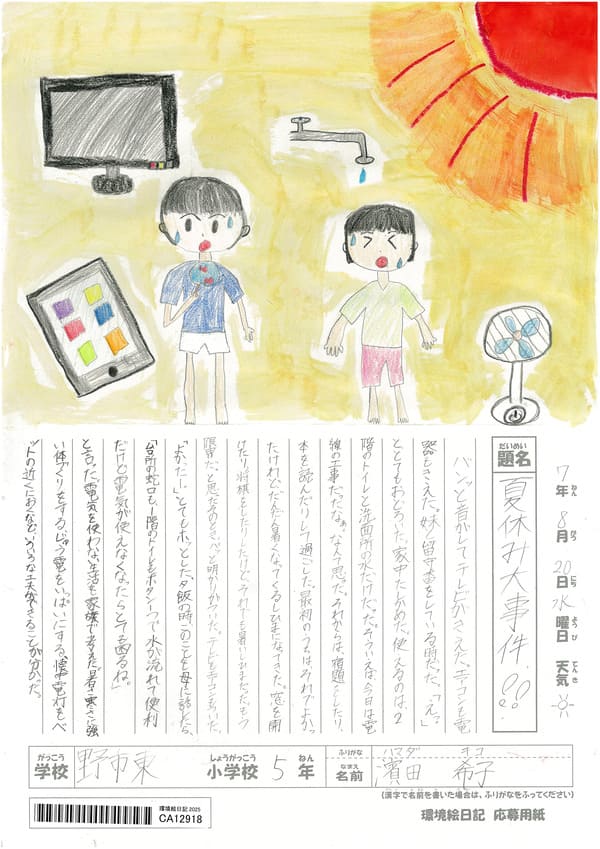 7年 8月 20日 水曜日 天気
ねん がつ にち ようび てんき
だいめい
題名
夏休み大事件!!
バンッと音がしてテレビがきえた。エアコンも電
器もきえた。妹と留守番をしている時だった。「えっ」
ととてもおどろいた。家中たしかめたが使えるのは、2
階のトイレと洗面所の水だけだった。そういえば、今日は電
線の工事だったなぁ。なんて思った。それからは、宿題をしたり、
本を読んだりして過ごした。最初のうちは、それでよかっ
たけれど、だんだん暑くなってくるしひまになってきた。窓を開
けたり将棋をしたりしたけど、それでも暑いしひまだった。もう
限界だ、と思ったそのとき、パッと明かりがついた。テレビもエアコンもついた。
「よかったー」とてもホッとした。夕飯の時、このことを母に話したら、
「台所の蛇口も、1階のトイレもボタン一つで水が流れて便利
だけど電気が使えなくなったらとても困るね。」
と言った。電気を使わない生活を家族で考えた。暑さ寒さに強
い体づくりをする。じゅう電をいっぱいにする。懐中電灯をベ
ットの近くにおくなど、いろいろな工夫ができることが分かった。
がっこう
学校
野市東
しょうがっこう
小学校
5
ねん
年
ふりがな
ハマダ ヨコ
なまえ
名前
濵田 希子
(漢字で名前を書いた場合は、ふりがなをふってください)
環境絵日記 応募用紙
環境絵日記 2025
CA12918